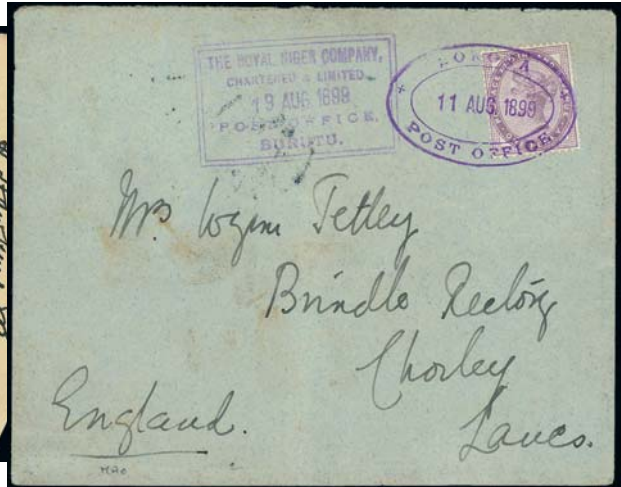 THE ROYAL NIGER COMPANY,
CHARTERED & LIMITED
19 AUG 1899
POST OFFICE,
BURUTU.
LOKOJA
11 AUG 1899
POST OFFICE
Mrs Wynn Tetley
Brindle Rectory
Chorley
Lancs.
England.